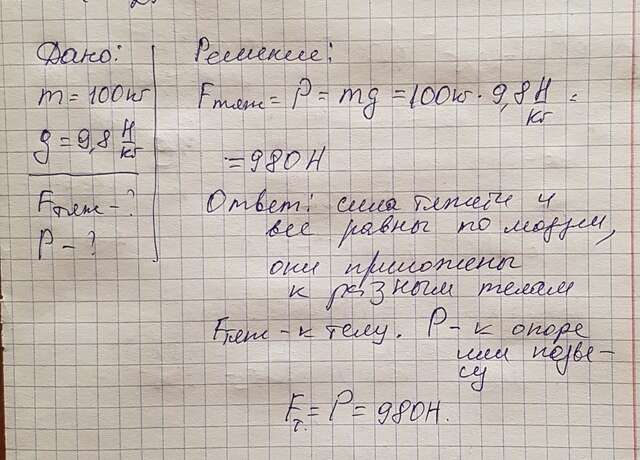 Дано:
m = 100кг
g = 9,8 Н/кг
Fтяж - ?
P - ?
Решение:
Fтяж = P = mg = 100кг · 9,8 Н/кг =
= 980 Н
Ответ: сила тяжести и
вес равны по модулю,
они приложены
к разным телам
Fтяж - к телу. P - к опоре
или подве-
су
Fт. = P = 980Н.